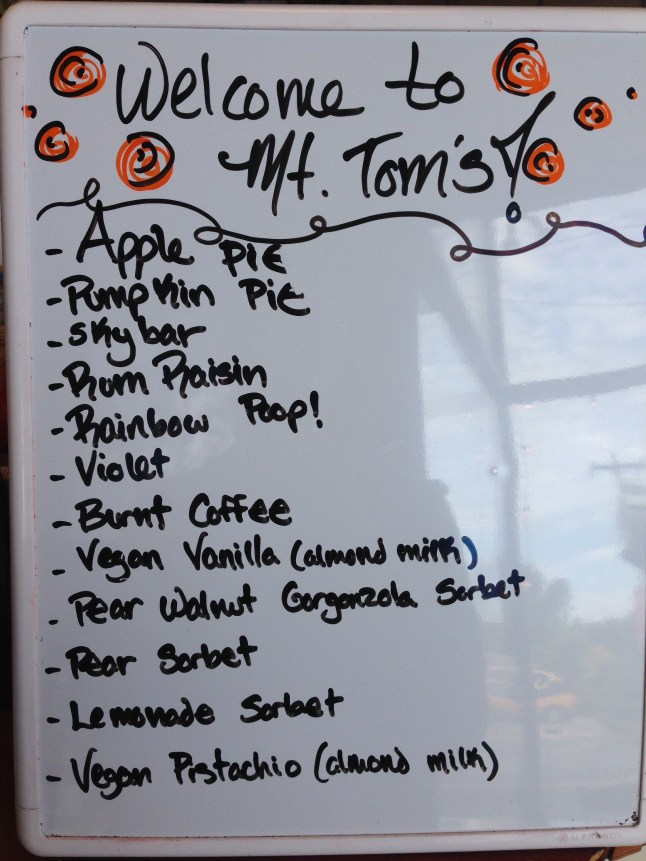 Welcome to
Mt. Tom's!
- Apple Pie
- Pumpkin Pie
- Skybar
- Rum Raisin
- Rainbow Poop!
- Violet
- Burnt Coffee
- Vegan Vanilla (almond milk)
- Pear Walnut Gorgonzola Sorbet
- Pear Sorbet
- Lemonade Sorbet
- Vegan Pistachio (almond milk)